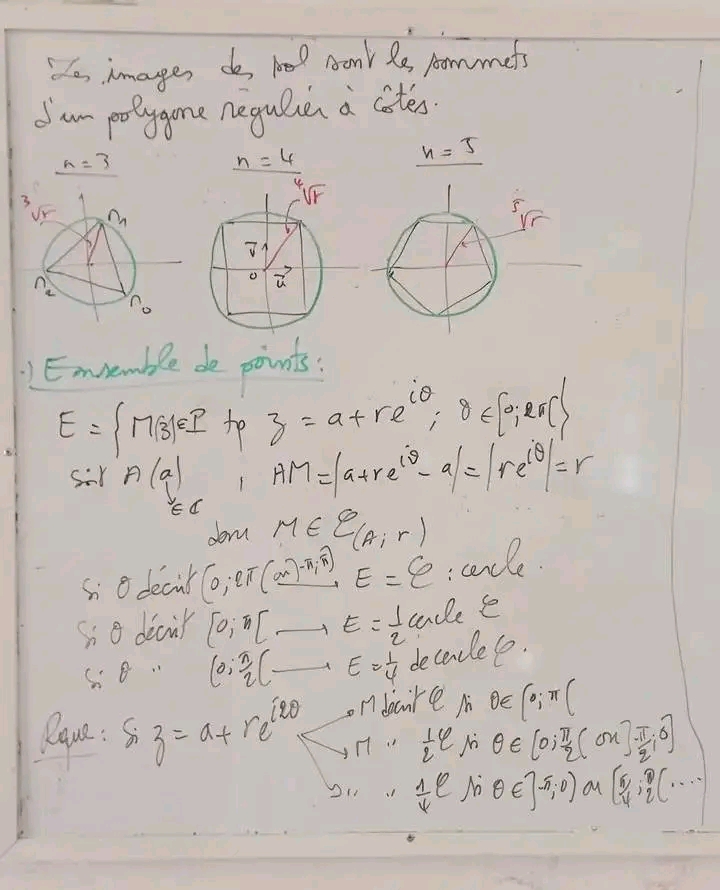 Les images des sol sont les sommets
d'un polygone régulier à côtés.
n = 3 n = 4 n = 5
³√r ⁴√r ⁵√r
M₁ M₂ M₀ O u⃗ v⃗
.) Ensemble de points :
E = { M(z) ∈ P tq z = a + re^{iθ} ; θ ∈ [0; 2π[ }
soit A(a) , AM = |a + re^{iθ} - a| = |re^{iθ}| = r
∈ ℂ
donc M ∈ 𝒞(A; r)
Si θ décrit [0; 2π[ (ou ]-π; π]) → E = 𝒞 : cercle.
Si θ décrit [0; π[ → E = 1/2 cercle 𝒞
Si θ " [0; π/2[ → E = 1/4 de cercle 𝒞.
Rque : Si z = a + re^{i2θ} → M décrit 𝒞 si θ ∈ [0; π[
→ M " 1/2 𝒞 si θ ∈ [0; π/2[ ou ]-π/2; 0]
→ " " 1/4 𝒞 si θ ∈ ou [π/4; π/2[ ....